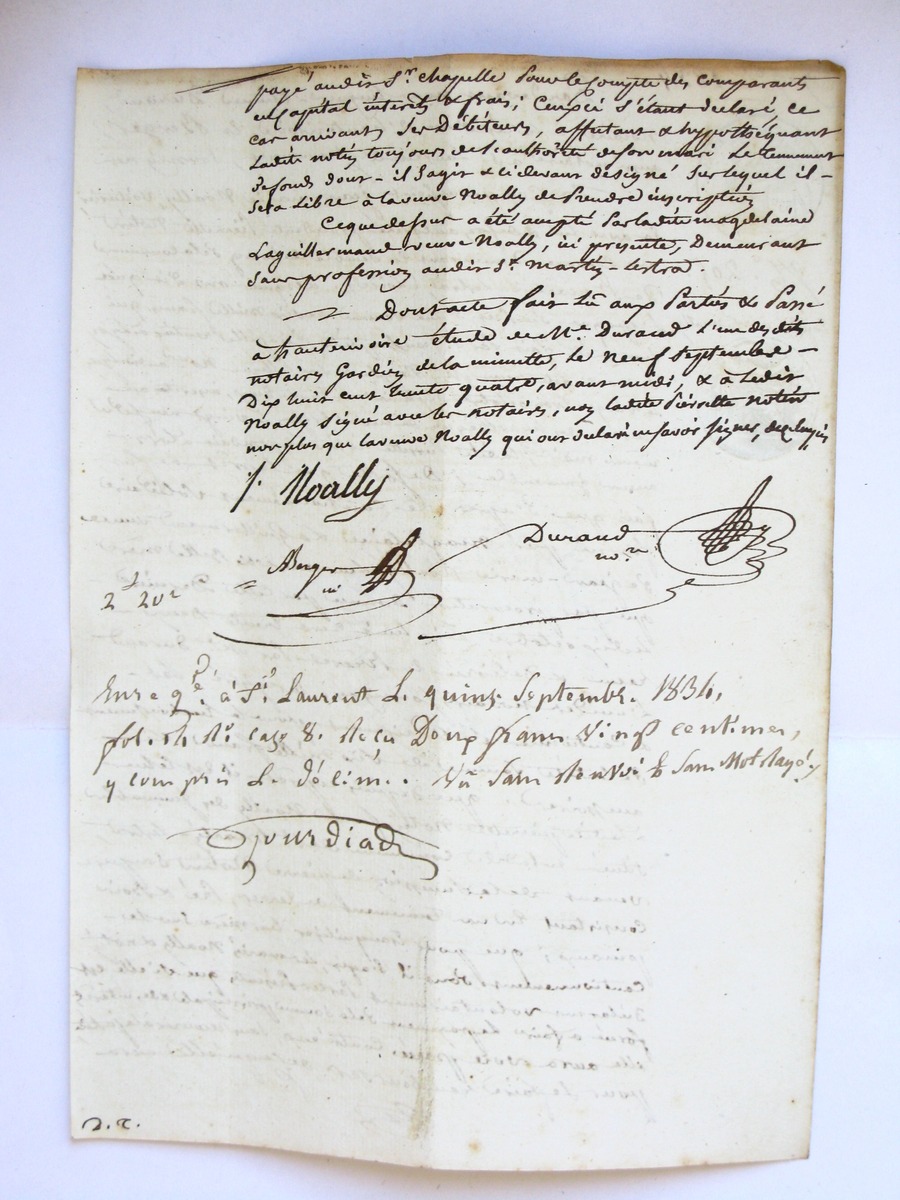 payé audit Sr. Chapelle pour le compte des comparants
en capital intérêts & frais; ce s'étant déclaré, ce
cas arrivant ses Débiteurs, affectant & hypothéquant
Ladite notin toujours de l'authorité de son mari Le tennement
de fonds dont - il s'agit & ci devant désigné sur lequel il -
sera Libre à la veuve Noally de Prendre inscription
Ce que dessus a été accepté Par ladite magdelaine
Laguillermaud veuve Noally, ici présente, Demeurant
Sans profession audit St. Martin - lestra.
Dont acte fait lû aux Parties & Passé
à hauterivoire étude de Me. Durand l'un desdits
notaires Gardien de la minutte, le neuf septembre -
Dix huit cent trente quatre, avant midi, & à Ledit
Noally signé avec les notaires, non ladite Pierrette notin
non plus que la veuve Noally qui ont déclaré ne savoir signer, de ce
J. Noally
Durand
nore.
Berger
2f 20c
Enregré. à St. Laurent Le quinze Septembre 1834,
fol. case 8. Reçu Deux francs vingt centimes,
y compris Le décime. Vû Sans Renvoi & Sans Mot Rayé.
Gourdiad
D. C.